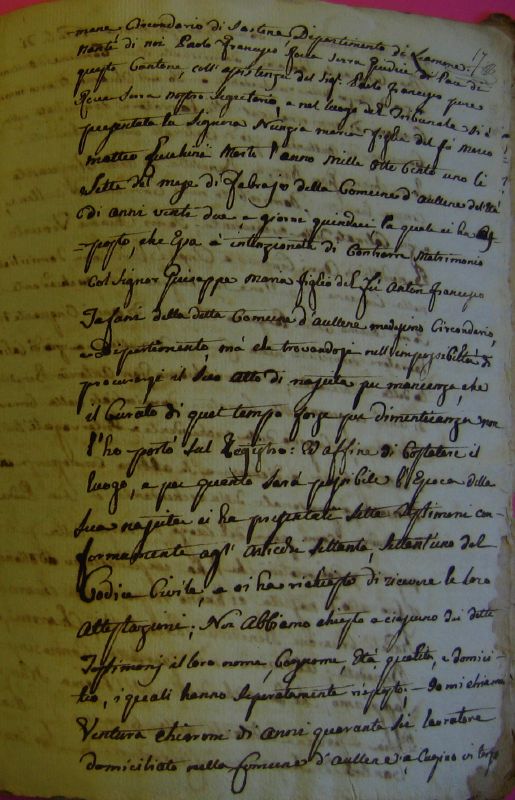 mane Circondario di Sartena Dipartimento di Liamone
nanté di noi Paolo Francesco Giudice di Pace di
questo Cantone, coll'assistenza del Sig.r Paolo Francesco pure
Serra nostro Segretario, e nel luogo del Tribunale si è
presentata la Signora Nunzia Maria figlia del fù Marco
Matteo morto l'anno mille otto cento uno li
sette del mese di Febrajo della Comune d'aullene del età
di anni vente due, e giorni quindeci la quale ci ha es-
-posto, che Essa è intenzionata di Contrarre Matrimonio
Col Signor Guiseppe Maria figlio del fù Anton Francesco
della detta Comune d'aullene medesimo Circondario,
e Dipartimento, mà che trovandosi nell'impossibiltà di
procurarsi il suo atto di nascita per mancanza, che
il Curato di quel tempo forse per dimenticanza non
l'ho portò sul Registro: Ed affine di Costatare il
luogo, e per quanto sarà possibile l'Epoca della
sua nascita ci ha presentati sette Testimoni con-
formamente agl'Articoli settanta, settant'uno del
Codice Civile, e ci ha richiesto di ricevere le loro
attestazione; Noi Abbiamo chiesto a ciascuno dei detti
Testimonj il loro nome, Cognome, Età qualità, e domici-
lio, i quali hanno separatamente risposto; Io mi chiamo
Ventura di anni quaranta sei lavratore
domiciliato nella Comune d'aullene, e Cugino in terzo